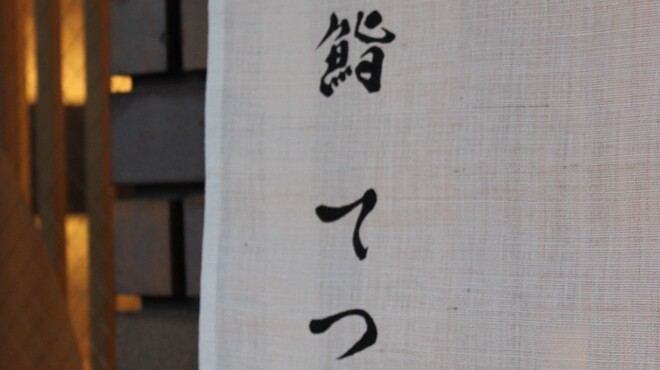 鮨てつ